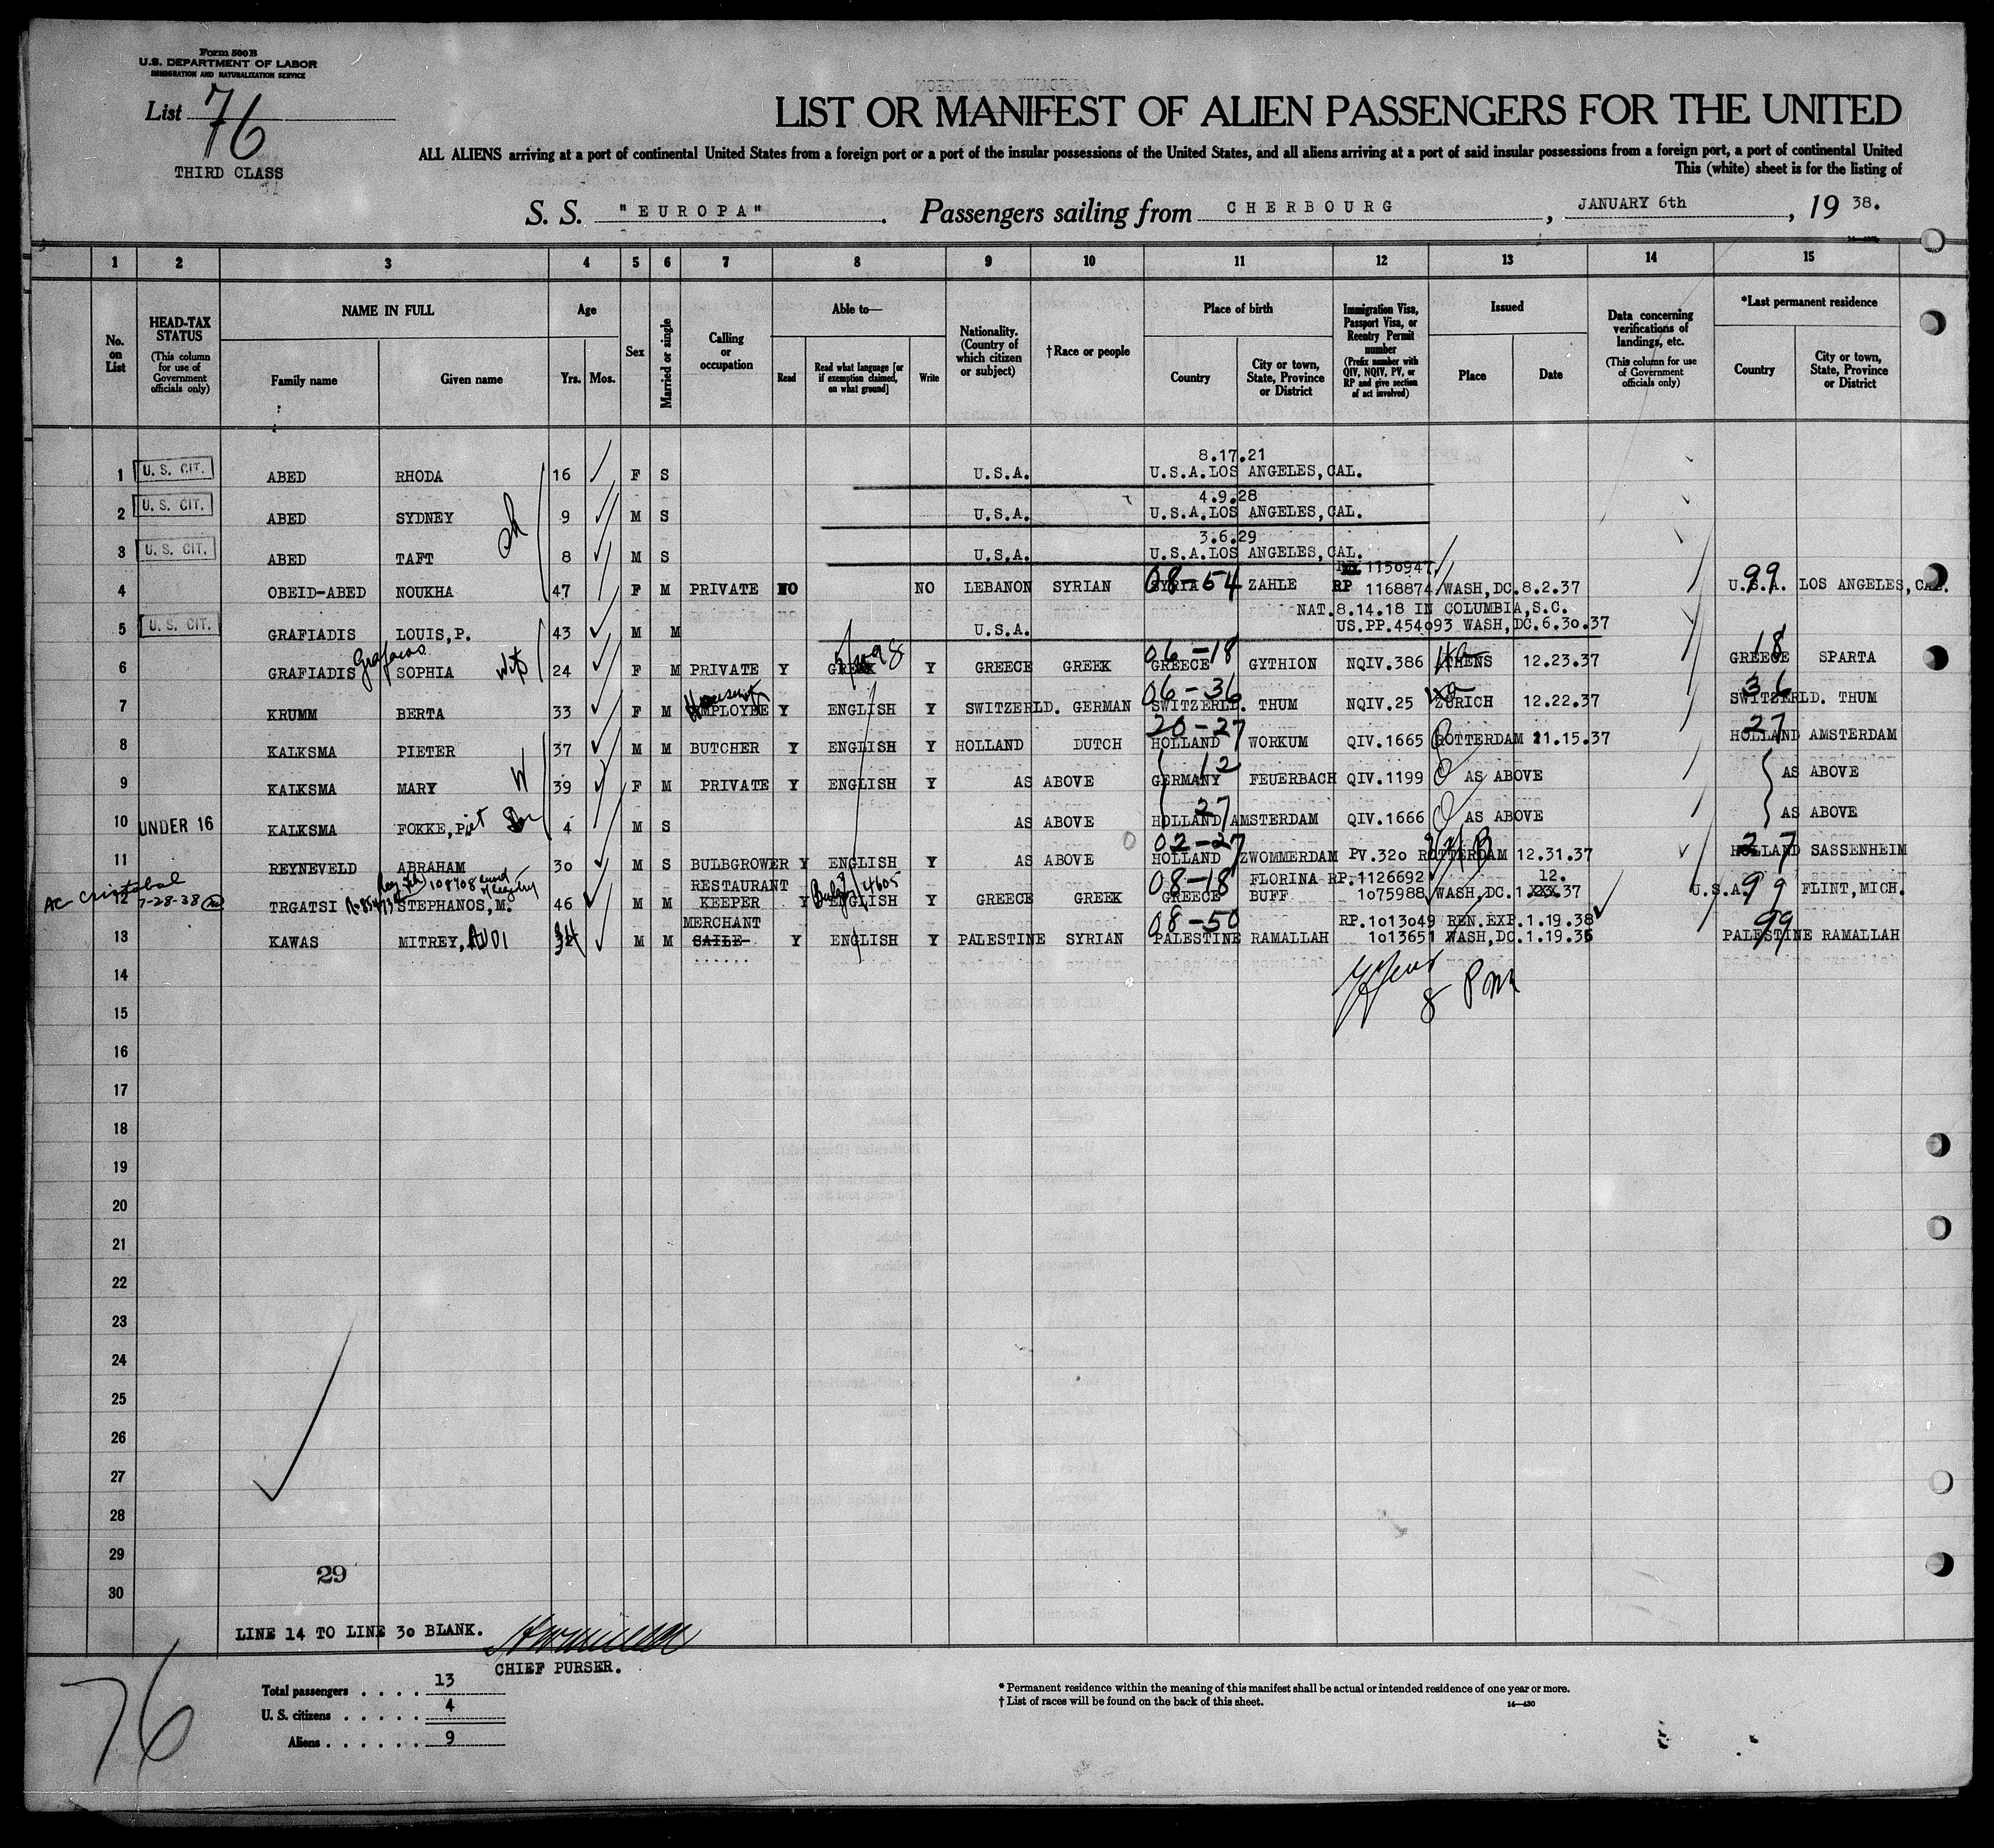 Form 500 B
U.S. DEPARTMENT OF LABOR
IMMIGRATION AND NATURALIZATION SERVICE
List 76
THIRD CLASS
LIST OR MANIFEST OF ALIEN PASSENGERS FOR THE UNITED
ALL ALIENS arriving at a port of continental United States from a foreign port or a port of the insular possessions of the United States, and all aliens arriving at a port of said insular possessions from a foreign port, a port of continental United
This (white) sheet is for the listing of
S. S. "EUROPA". Passengers sailing from CHERBOURG, JANUARY 6th, 19 38.
1 2 3 4 5 6 7 8 9 10 11 12 13 14 15
No. on List
HEAD-TAX STATUS (This column for use of Government officials only)
NAME IN FULL
Family name Given name
Age
Yrs. Mos.
Sex
Married or single
Calling or occupation
Able to—
Read
Read what language [or if exemption claimed, on what ground]
Write
Nationality. (Country of which citizen or subject)
†Race or people
Place of birth
Country
City or town, State, Province or District
Immigration Visa, Passport Visa, or Reentry Permit number (Prefix number with QIV, NQIV, PV, or RP and give section of act involved)
Issued
Place Date
Data concerning verifications of landings, etc. (This column for use of Government officials only)
*Last permanent residence
Country
City or town, State, Province or District
8.17.21
1 U. S. CIT. ABED RHODA 16 F S U.S.A. U.S.A. LOS ANGELES, CAL.
4.9.28
2 U. S. CIT. ABED SYDNEY 9 M S U.S.A. U.S.A. LOS ANGELES, CAL.
3.6.29
3 U. S. CIT. ABED TAFT 8 M S U.S.A. U.S.A. LOS ANGELES, CAL.
1150947
4 OBEID-ABED NOUKHA 47 F M PRIVATE NO NO LEBANON SYRIAN SYRIA 08-54 ZAHLE RP 1168874 WASH, DC. 8.2.37 U.S.A. 99 LOS ANGELES, CAL.
NAT. 8.14.18 IN COLUMBIA, S.C.
5 U. S. CIT. GRAFIADIS LOUIS, P. 43 M M U.S.A. US.PP.454093 WASH, DC. 6.30.37
6 GRAFIADIS SOPHIA wife 24 F M PRIVATE Y GREEK Y GREECE GREEK GREECE 06-18 GYTHION NQIV.386 ATHENS 12.23.37 GREECE 18 SPARTA
7 KRUMM BERTA 33 F M EMPLOYEE Y ENGLISH Y SWITZERLD. GERMAN SWITZERLD. 06-36 THUM NQIV.25 ZURICH 12.22.37 SWITZERLD. 36 THUM
8 KALKSMA PIETER 37 M M BUTCHER Y ENGLISH Y HOLLAND DUTCH HOLLAND 20-27 WORKUM QIV.1665 ROTTERDAM 11.15.37 HOLLAND 27 AMSTERDAM
9 KALKSMA MARY W 39 F M PRIVATE Y ENGLISH Y AS ABOVE GERMANY 12 FEUERBACH QIV.1199 AS ABOVE AS ABOVE
10 UNDER 16 KALKSMA FOKKE, Piet Son 4 M S AS ABOVE HOLLAND 27 AMSTERDAM QIV.1666 AS ABOVE AS ABOVE
11 REYNEVELD ABRAHAM 30 M S BULBGROWER Y ENGLISH Y AS ABOVE HOLLAND 02-27 ZWOMMERDAM PV.320 ROTTERDAM 12.31.37 HOLLAND 27 SASSENHEIM
AC Cristobal 7-28-38
RESTAURANT 08-18 FLORINA RP.1126692 12.
12 TRGATSI STEPHANOS, M. 46 M M KEEPER Y ENGLISH Y GREECE GREEK GREECE BUFF 1075988 WASH, DC. 1.XXX.37 U.S.A. 99 FLINT, MICH.
MERCHANT 08-50 RP.1013049 REN.EXP.1.19.38
13 KAWAS MITREY, AUDI 34 M M SAILE Y ENGLISH Y PALESTINE SYRIAN PALESTINE RAMALLAH 1013651 WASH, DC. 1.19.36 PALESTINE 99 RAMALLAH
14
15
8 Pm
16
17
18
19
20
21
22
23
24
25
26
27
28
29
30
29
LINE 14 TO LINE 30 BLANK.
CHIEF PURSER.
Total passengers . . . . 13
U. S. citizens . . . . . 4
Aliens . . . . . . 9
76
* Permanent residence within the meaning of this manifest shall be actual or intended residence of one year or more.
† List of races will be found on the back of this sheet.
14—430